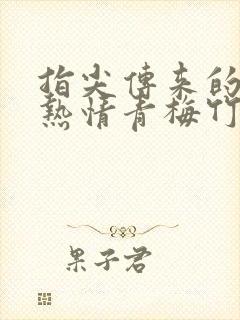 指尖傳來的
熱情青梅竹
果子君